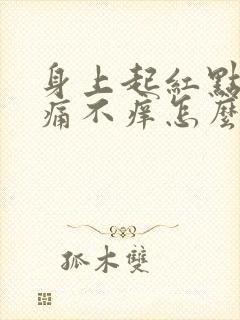 身上起紅點
痛不痒怎麼
孤木雙